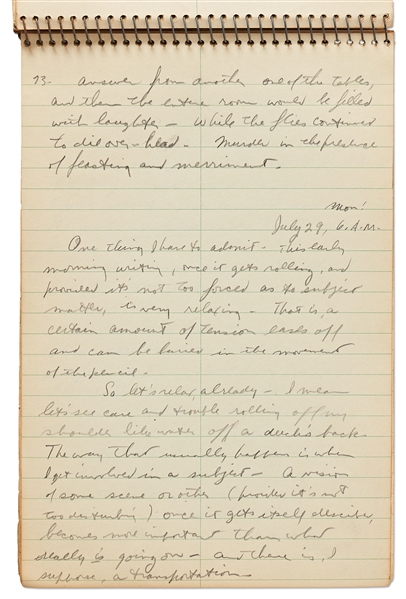 73- answer from another one of the tables,
and then the entire room would be filled
with laughter - While the flies continued
to die over-head. Murder in the presence
of feasting and merriment.
Mon!
July 29, 6. A.M.
One thing I have to admit - This early
morning writing, once it gets rolling, and
provided it's not too forced as to subject
matter, is very relaxing - That is, a
certain amount of tension eases off
and can be buried in the movement
of the pencil -
So let's relax, already - I mean
let's see care and trouble rolling off my
shoulder like water off a duck's back -
The way that usually happens is when
I get involved in a subject - A vision
of some scene or other (provided it's not
too disturbing) once it gets itself described,
becomes more important than what
really is going on - and there is, I
suppose, a transportation